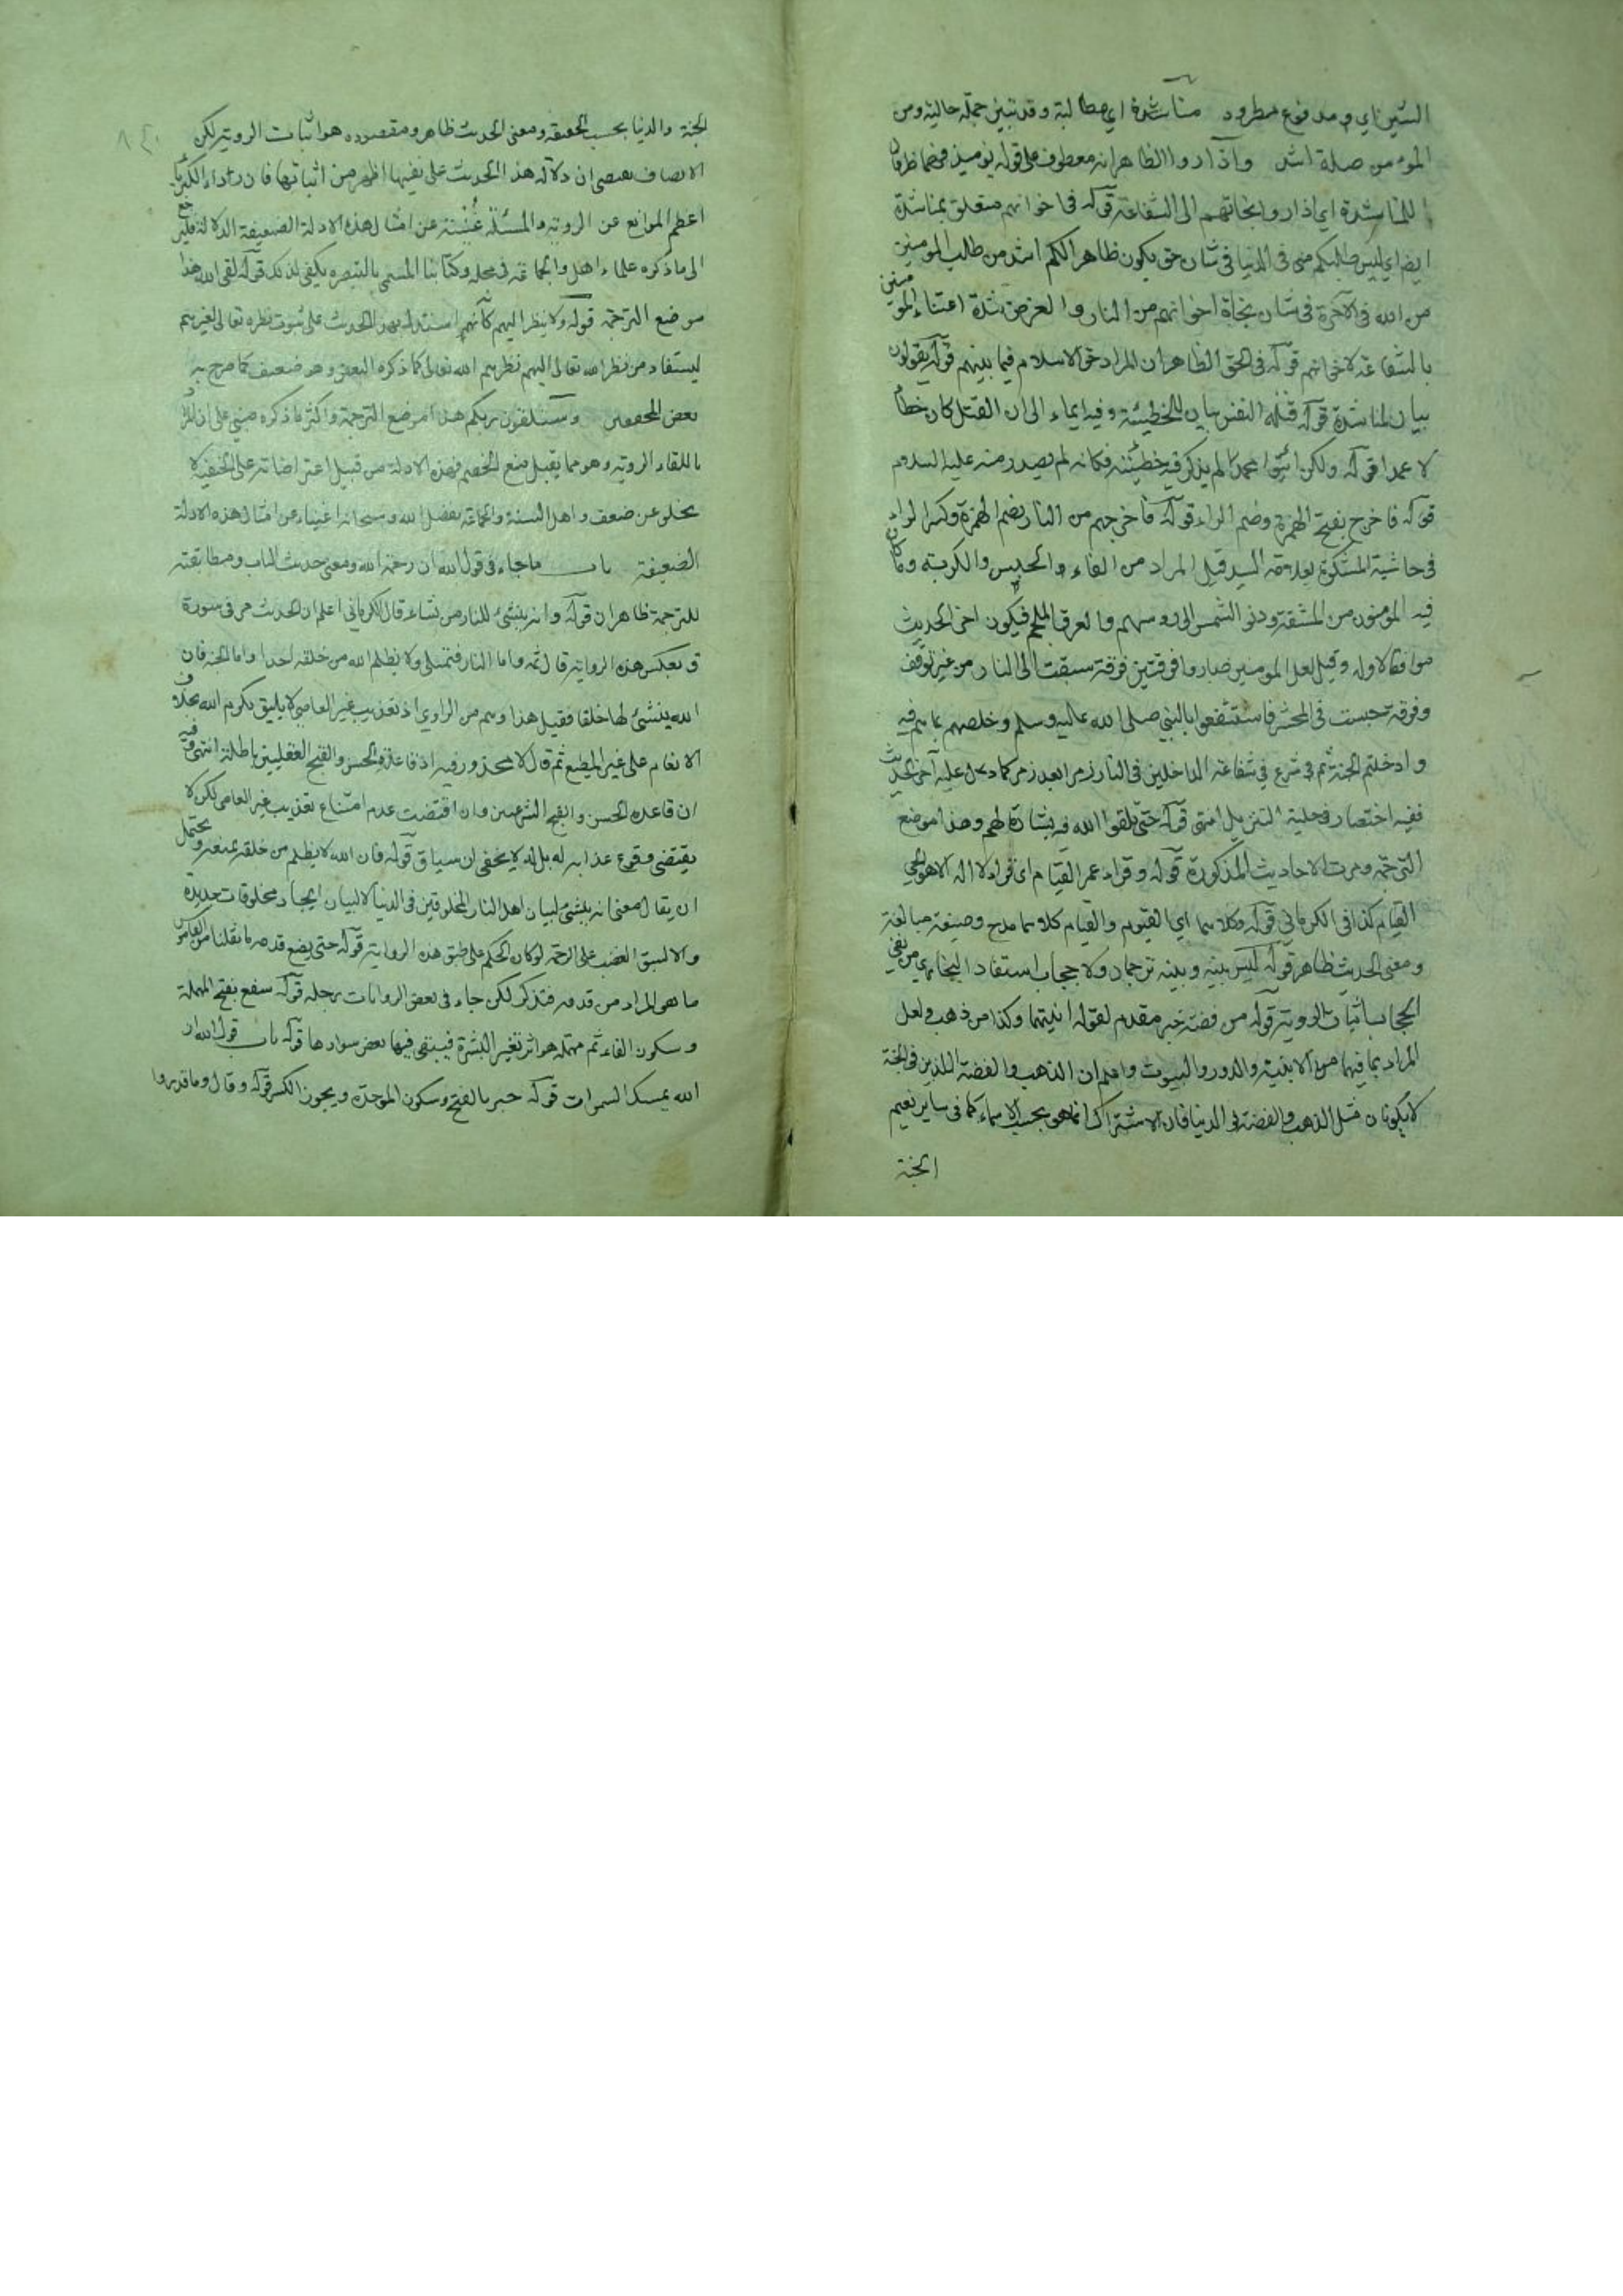 الشين اي ومدفوع مطرود مناشدة اي مطالبة وقد تبين جملة حالية ومن
المؤمن صلة اشد واذا راوا الظاهر انه معطوف على قوله يومئذ فهما ظرفان
للمناشدة اي اذا راوا نجاتهم الى الشفاعة قوله في اخوانهم متعلق بمناشدة
ايضا اي ليس طلبكم مني في الدنيا في شان حق يكون ظاهرا لكم اشد من طلب المومنين
من الله في الآخرة في شان نجاة اخوانهم من النار والغرض شدة اعتناء المومنين
بالشفاعة لاخوانهم قوله في الحق الظاهر ان المراد حق الاسلام فيما بينهم قوله يقولون
بيان لمناشدة قوله قتله النفس بيان للخطيئة وفيه ايماء الى ان القتل كان خطأ
لا عمدا قوله ولكن ائتوا محمدا لم يذكر فيه خطيئته فكانه لم يصدر منه عليه السلام
قوله فاخرج بفتح الهمزة وضم الراء قوله فاخرجهم من النار بضم الهمزة وكسر الراء
في حاشية المشكوة لعلامة السيد قيل المراد من النار الحبس والكربة وما كان
فيه المومنون من المشقة ودنو الشمس الى روسهم والعرق الملجم فيكون اخر الحديث
موافقا لاوله وقيل لعل المومنين صاروا فرقتين فرقة سبقت الى النار من غير توقف
وفرقة حبست في المحشر فاستشفعوا بالنبي صلى الله عليه وسلم وخلصهم بما هم فيه
وادخلهم الجنة ثم شرع في شفاعة الداخلين في النار زمرا بعد زمر كما دل عليه آخر الحديث
ففيه اختصار التنزيل انتهى قوله حتى تلقوا الله فيه بشارة لهم وهذا موضع
الترجمة ومرت الاحاديث المذكورة قوله وقراء عمر القيام اي قراء لا اله الا هو الحي
القيام كذا في الكرماني قوله وكلاهما اي القيوم والقيام كلاهما مدح وصيغة مبالغة
ومعنى الحديث ظاهر قوله ليس بينه وبينه ترجمان ولا حجاب استفاد البخاري من نفي
الحجاب اثبات الروية قوله من فضة خبر مقدم لقوله انيتهما وكذا من ذهب ولعل
المراد بما فيهما من الابنية والدور والبيوت واعلم ان الذهب والفضة اللذين في الجنة
لا يكونان مثل الذهب والفضة في الدنيا فان الاشتراك انما هو بحسب الاسماء كما في ساير نعيم
الجنة
الجنة والدنيا بحسب الحقيقة ومعنى الحديث ظاهر ومقصوده هو اثبات الروية لكن
الانصاف يقتضي ان دلالة هذا الحديث على نفيها اظهر من اثباتها فان رداء الكبرياء
اعظم الموانع عن الروية والمسئلة غنية عن امثال هذه الادلة الضعيفة الدلالة فليرجع
الى ما ذكره علماء اهل والجماعة في محله وكتابنا المسمى بالتبصره يكفي لذلك قوله لقي الله هذا
موضع الترجمة قوله ولا ينظر اليهم كأنهم استدل بهذا الحديث على ثبوت نظره تعالى لغيرهم
ليستفاد من نظر الله تعالى اليهم نظرهم الله تعالى كما ذكره البعض وهو ضعيف كما صرح به
بعض المحققين وستلقون ربكم هذا موضع الترجمة واكثر ما ذكره مبني على ان المراد
باللقاء الروية وهو مما يقبل منع الخصم فهذه الادلة من قبيل اعتراضاته على الحنفية لا
يخلو عن ضعف واهل السنة والجماعة بفضل الله وسبحانه اغنياء عن امثال هذه الادلة
الضعيفة باب ما جاء في قول الله ان رحمة الله ومعنى حديث الباب ومطابقته
للترجمة ظاهران قوله وانه ينشئ للنار من يشاء قال الكرماني اعلم ان الحديث مر في سورة
ق بعكس هذه الرواية قال ثمه واما النار فتمتلي ولا يظلم الله من خلقه احدا واما الجنة فان
الله ينشئ لها خلقا فقيل هذا وهم من الراوي اذ تعذيب غير العاصي لا يليق بكرم الله بخلاف
الانعام على غير المطيع ثم قال لا محذور فيه اذ قاعدة الحسن والقبح العقليين باطلة انتهى فيه
ان قاعدة الحسن والقبح الشرعيين وان اقتضت عدم امتناع تعذيب غير العاصي لكن لا
يقتضي وقوع عذابه له بل له لا يخفى ان سياق قوله فان الله لا يظلم من خلقه يمنعه ويحتمل
ان يقال معنى انه ينشئ لبيان اهل النار المخلوقين في الدنيا لا لبيان ايجاد مخلوقات جديدة
والا لسبق الغضب على الرحمة لو كان الحكم على طبق هذه الرواية قوله حتى يضع قدمه ما نقلنا من القاموس
ما هو المراد من قدمه فتذكر لكن جاء في بعض الروايات رجله قوله سفع بفتح المهملة
وسكون الفاء ثم مهملة هو اثر تغير البشرة فيبقى فيها بعض سوادها قوله باب قول الله ان
الله يمسك السموات قوله حبر بالفتح وسكون الموحدة ويجوز الكسر قوله وقال وما قدروا